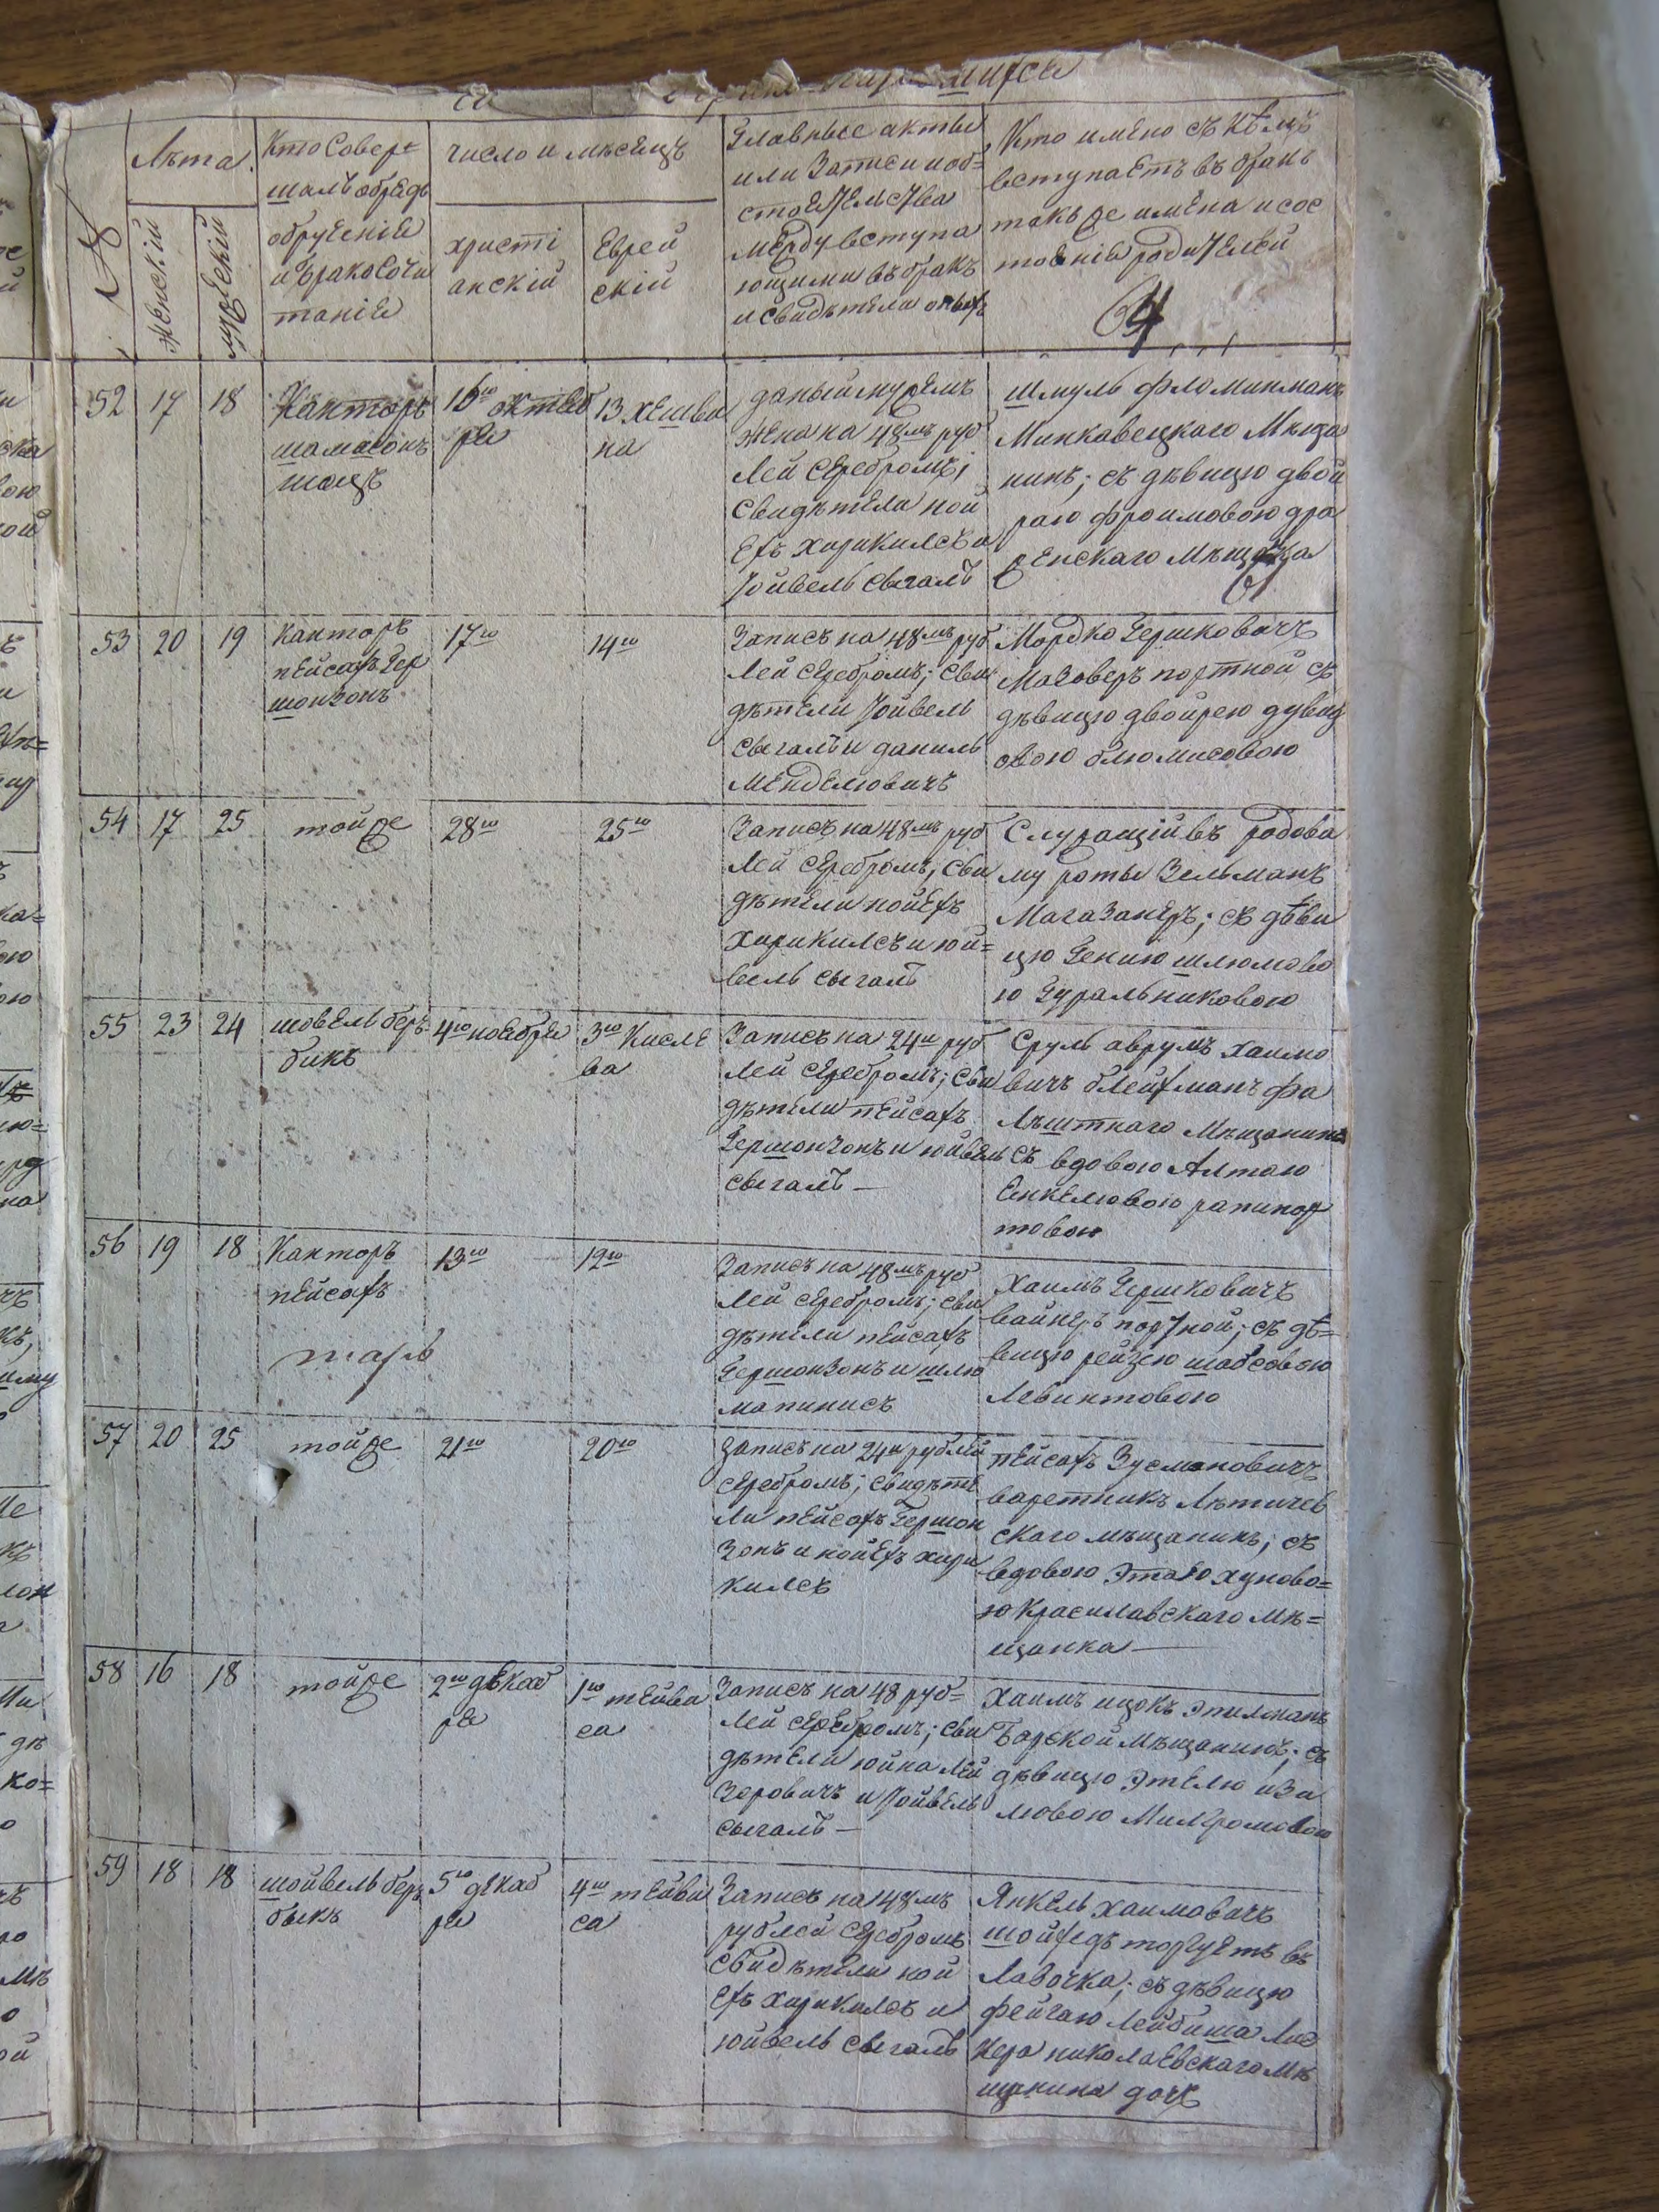 Лѣта
женскій
мужескій
Кто Совер=
шалъ обредъ
обрученіе
и бракосочи
таніе
число и мѣсецъ
христі
анскій
Еврей
скій
Главные акты
или Записи и об=
стоетельства
между вступа
ющими въ бракъ
и свидѣтели оныхъ
Кто имено съ кѣмъ
вступаетъ въ бракъ
также имена и сос
тоеніе родителей
64
52
17
18
Канторъ
шамасонъ
шацъ
16го октеб
ре
13 хешва
на
даный мужемъ
жена на 48мъ руб
лей серебромъ;
свидѣтели ной
ехъ хирикилсъ и
Юйвель сыгалъ
шмуль фломинманъ
Минковецкаго Мѣща
нинъ; съ дѣвицю двой
раю фроимовою дра
женскаго мѣщанка
53
20
19
Канторъ
пейсахъ Гер
шонзонъ
17го
14го
Записъ на 48мъ руб
лей серебромъ; сви
дѣтели Юйвель
сыгалъ и даниль
менделювичъ
Мордко Гершковичъ
Мазоверъ портной съ
дѣвицю двойрею дувид
овою блюмисовою
54
17
25
тойже
28го
25го
Записъ на 48мъ руб
лей серебромъ; сви
дѣтели нойехъ
хирикилсъ и юй=
вель сыгалъ
Служащій въ
му роты Зельманъ
Магазанеръ; съ дѣви
цю Гению шлюмово
ю Гуральниковою
55
23
24
шовель бер
бикъ
4го ноебре
3го Кисле
ва
Записъ на 24и руб
лей серебромъ; сви
дѣтели пейсахъ
Гершонзонъ и юйвель
сыгалъ —
Сруль аврумъ хаимо
вичъ блейхманъ фа
лѣштнаго мѣщанинъ
съ вдовою Алтаю
Енкелювою рапипор
товою
56
19
18
Канторъ
пейсахъ
13го
12го
Записъ на 48мъ руб
лей серебромъ; сви
дѣтели пейсахъ
Гершонзонъ и шлю
ма пинисъ
Хаимъ Гершковичъ
вайнеръ портной; съ дѣ=
вицю рейзею шабсовою
Левинтовою
57
20
25
тойже
21го
20го
записъ на 24и рублей
серебромъ; свидѣте
ли пейсахъ Гершон
зонъ и нойехъ хири
килсъ
пейсахъ Зусмановичъ
варетникъ Лѣтичев
скаго мѣщанинъ; съ
вдовою Этаю хуново=
ю Красилавскаго мѣ=
щанка —
58
16
18
тойже
2го декаб
ре
1го тейва
са
Записъ на 48 руб=
лей серебромъ; сви
дѣтели юйна лей
зеровичъ и Юйвель
сыгалъ —
Хаимъ ицокъ Эпилманъ
Барской мѣщанинъ; съ
дѣвицю Этелю изи
лювою Милгромовою
59
18
18
шойвель бер
быкъ
5го декаб
ре
4го тейви
са
Записъ на 48мъ
рублей серебромъ
свидѣтели ной
ехъ хирикилсъ и
юйвель сыгалъ
Янкель хаимовичъ
шойхедъ торгуетъ въ
лавочка; съ дѣвицю
фейгаю лейбиша Лис
нера николаевскаго мѣ
щанина дочъ